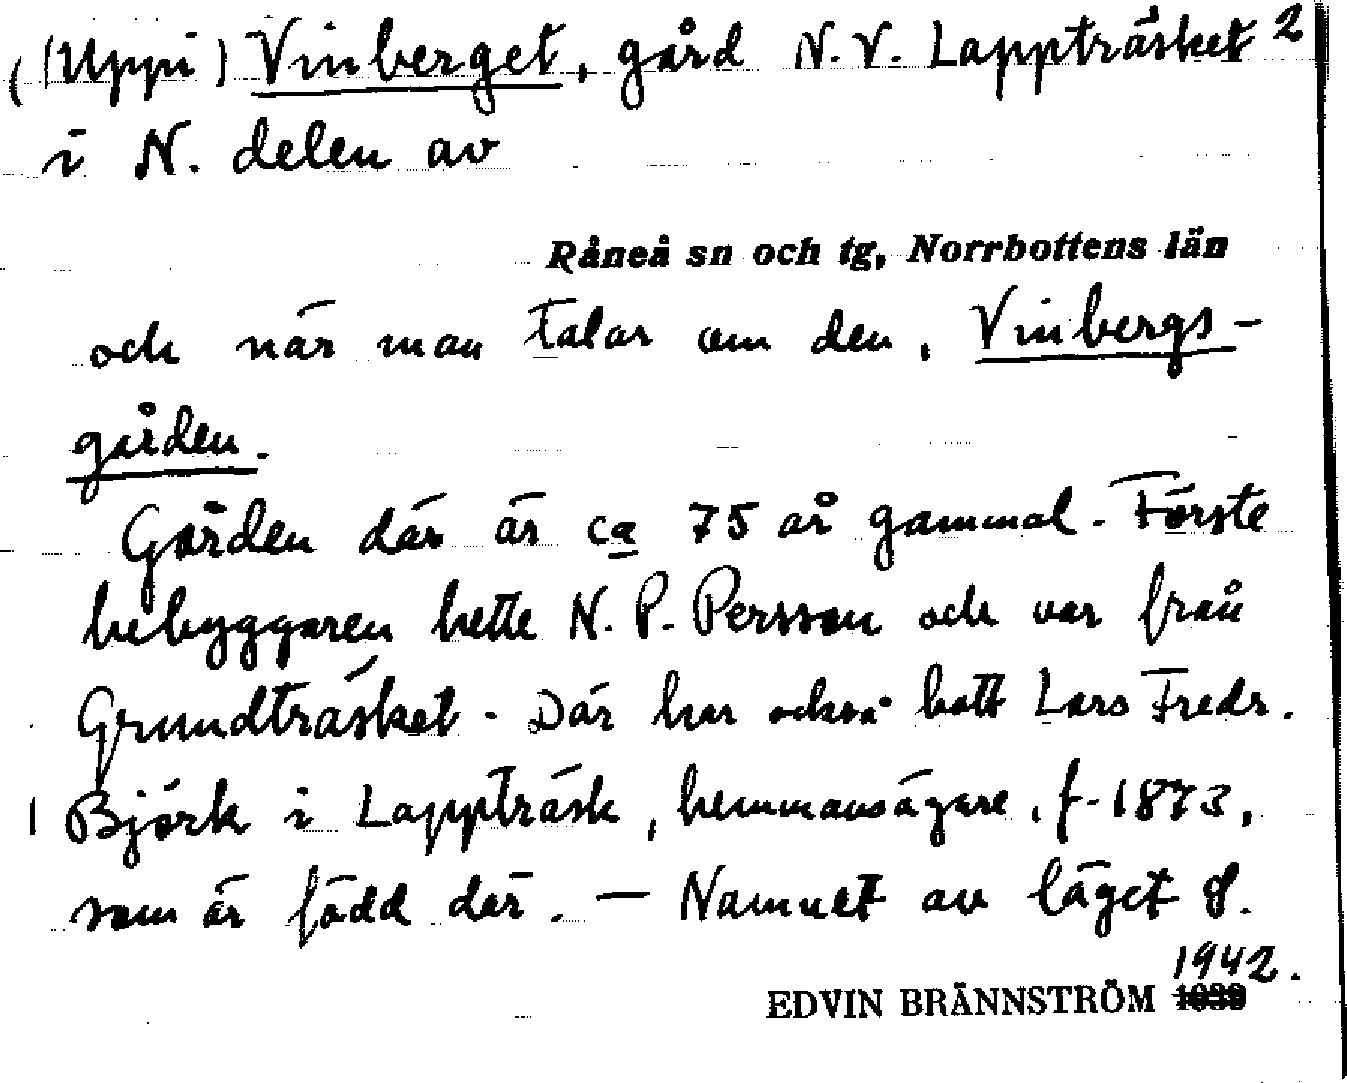 ((Uppi) Vinberget, gård N.V. Lappträsket 2
i N. delen av
Råneå sn och tg, Norrbottens län
och när man talar om den, Vinbergs-
gården.
Gården där är ca 75 år gammal. Förste
bebyggaren hette N. P. Persson och var från
Grundträsket. Där har också bott Lars Fredr.
Björk i Lappträsk, hemmansägare, f. 1873,
som är född där. — Namnet av läget
1942.
EDVIN BRÄNNSTRÖM 1939